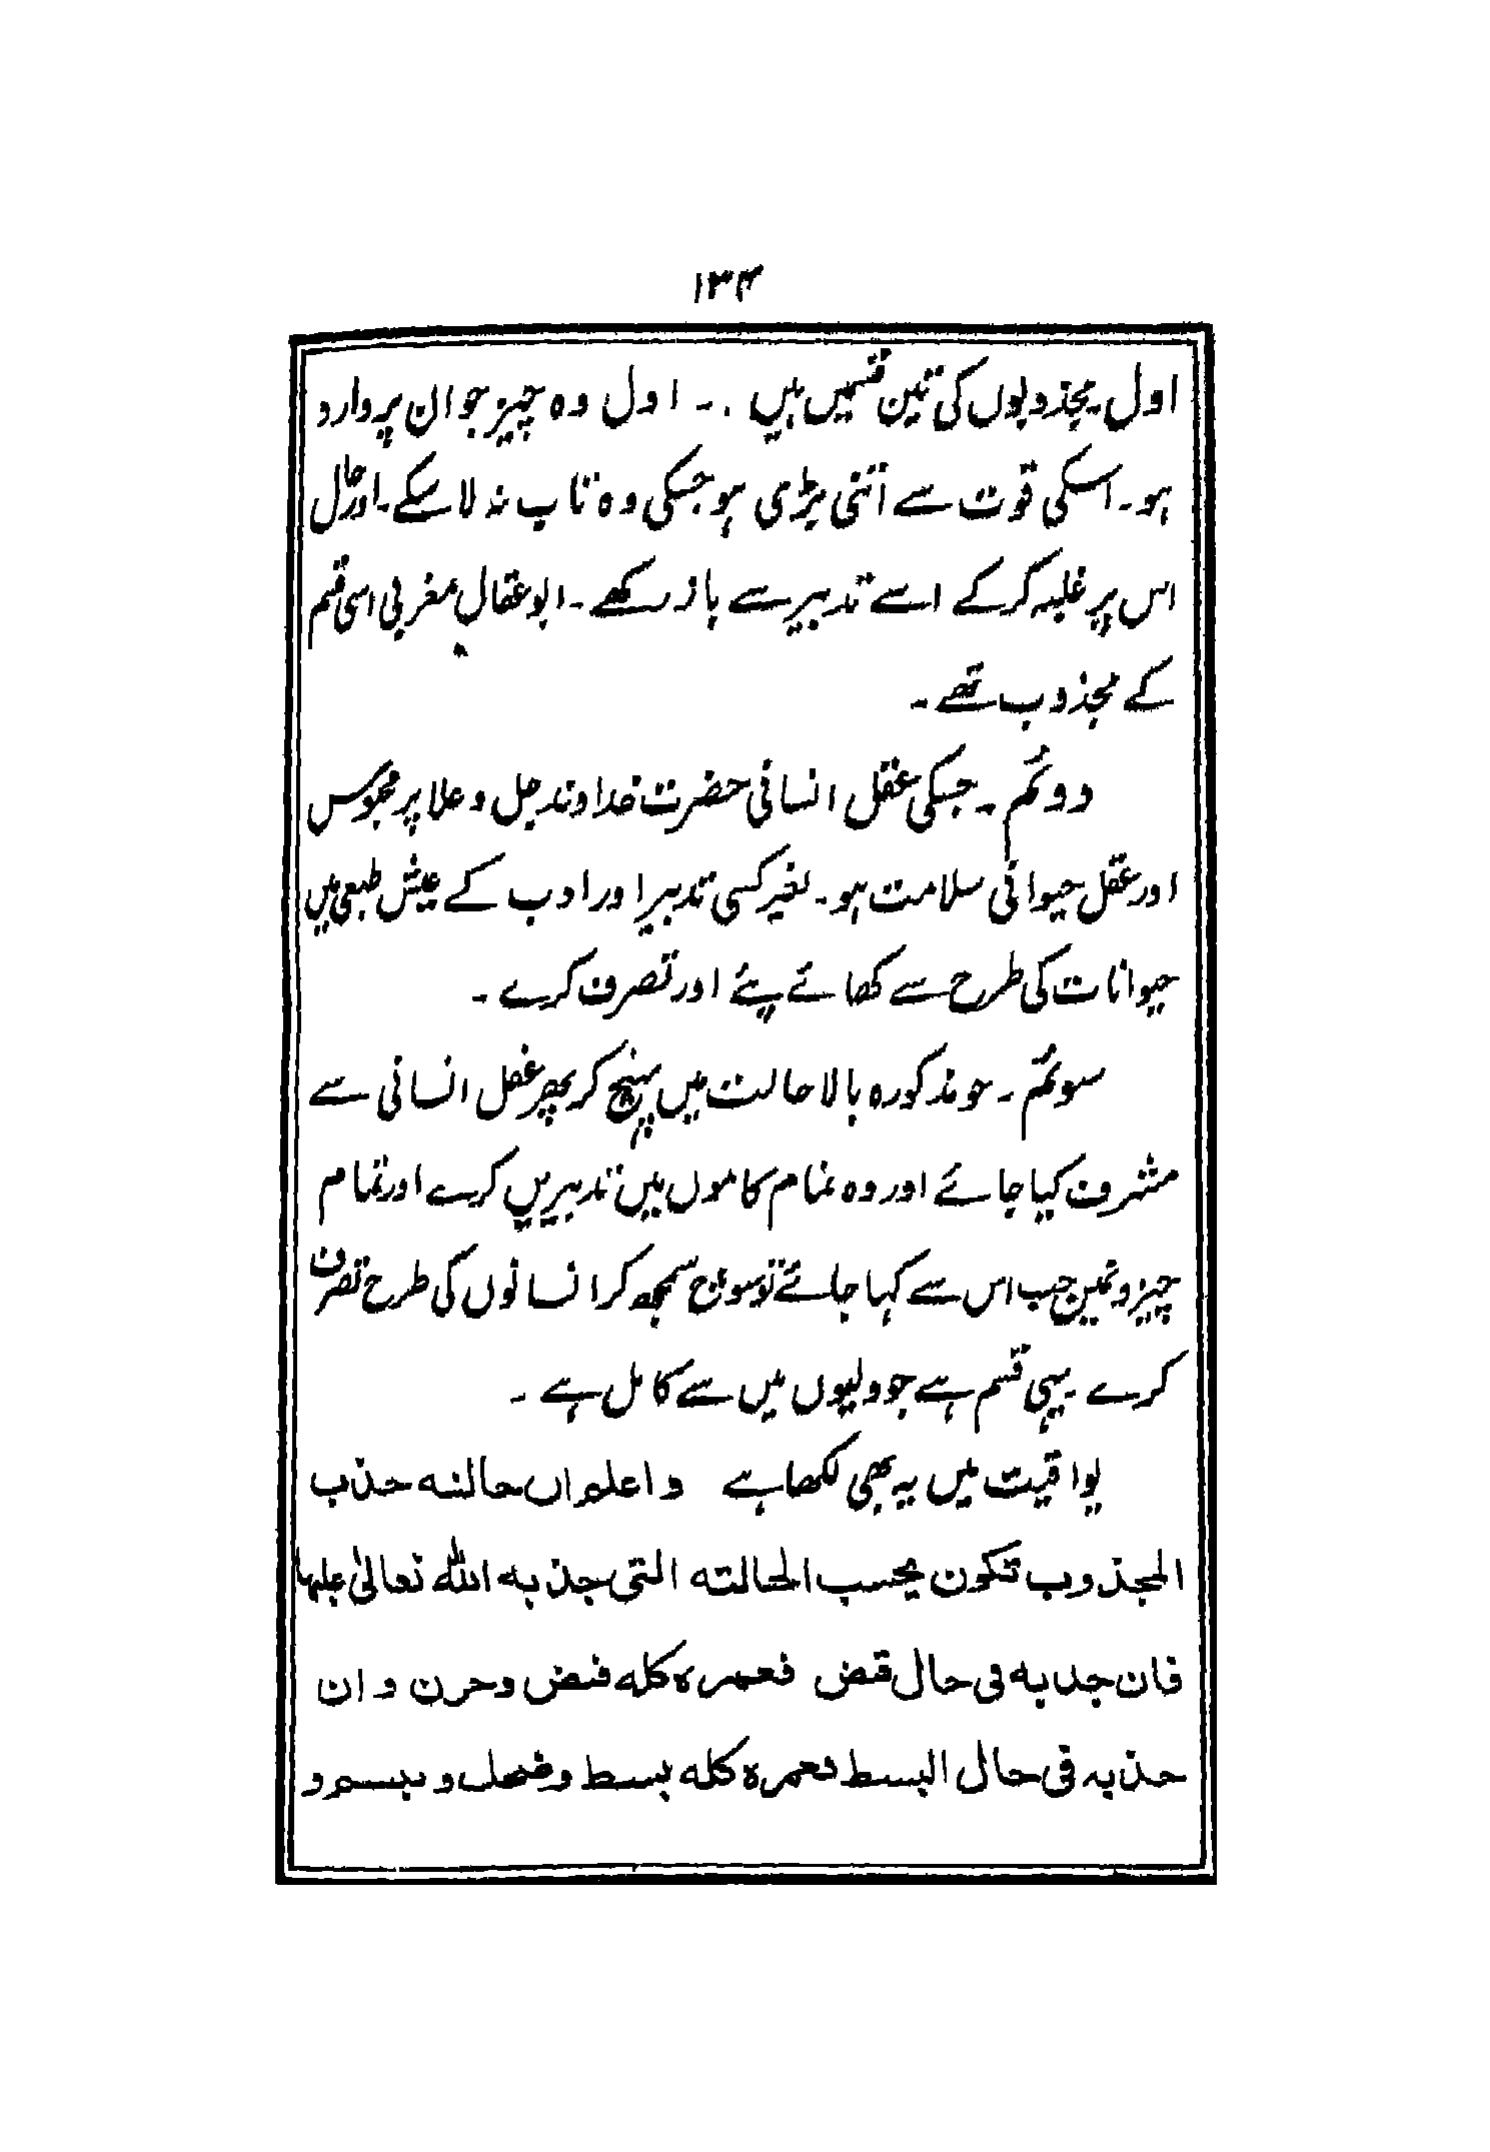 ۱۳۴
اول۔ مجذوبوں کی تین قسمیں ہیں ۔۔ اول وہ چیز جو ان پر وارد
ہو۔ اسکی قوت سے اتنی بڑی ہو جسکی وہ تاب نہ لا سکے۔ اور حال
اس پر غلبہ کرکے اسے تدبیر سے باز رکھے۔ ابو عقال مغربی اسی قسم
کے مجذوب تھے۔
دوئم ۔ جسکی عقل انسانی حضرت خداوند جل و علا پر محبوس
اور عقل حیوانی سلامت ہو۔ بغیر کسی تدبیر اور ادب کے عیش طبعی میں
حیوانات کی طرح سے کھائے پئے اور تصرف کرے ۔
سوئم ۔ جو مذکورہ بالا حالت میں پہنچ کر پھر عقل انسانی سے
مشرف کیا جائے اور وہ تمام کاموں میں تدبیریں کرے اور تمام
چیزونمیں جب اس سے کہا جائے تو سوچ سمجھ کر انسانوں کی طرح تصرف
کرے ۔ یہی قسم ہے جو ولیوں میں سے کامل ہے ۔
یواقیت میں یہ بھی لکھا ہے واعلم ان حالته جذب
المجذوب تکون بحسب الحالته التی جذبه الله تعالیٰ علیها
فان جذبه فی حال قبض فعمره کله قبض وحزن وان
جذبه فی حال البسط فعمره کله بسط وضحک وتبسم و